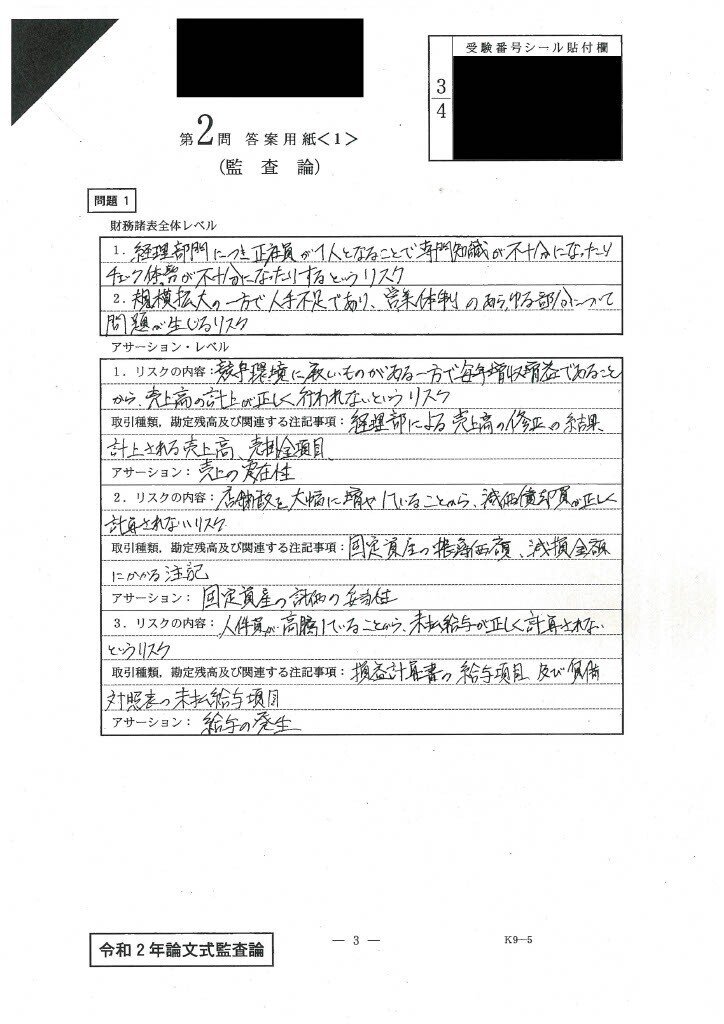 受験番号シール貼付欄
3
4
第2問 答案用紙<1>
(監査論)
問題 1
財務諸表全体レベル
1. 経理部門につき正社員が1人となることで専門知識が不十分になったり
チェック体制が不十分になったりするというリスク
2. 規模拡大の一方で人手不足であり、営業体制のあらゆる部分について
問題が生じるリスク
アサーション・レベル
1. リスクの内容:競争環境に厳しいものがある一方で毎年増収増益であること
から、売上高の計上が正しく行われないというリスク
取引種類,勘定残高及び関連する注記事項:経理部による売上高の修正の結果、
計上される売上高、売掛金項目
アサーション:売上の実在性
2. リスクの内容:店舗数を大幅に増やしていることから、減価償却費が正しく
計算されないリスク
取引種類,勘定残高及び関連する注記事項:固定資産の 価額、減損金額
にかかる注記
アサーション:固定資産の評価の妥当性
3. リスクの内容:人件費が高騰していることから、未払給与が正しく計算されない
というリスク
取引種類,勘定残高及び関連する注記事項:損益計算書の給与項目及び貸借
対照表の未払給与項目
アサーション:給与の発生
令和2年論文式監査論
— 3 —
K9—5